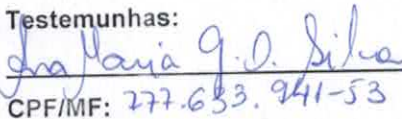 Testemunhas:
Ana Maria G. O. Silva
CPF/MF: 277.633.941-53